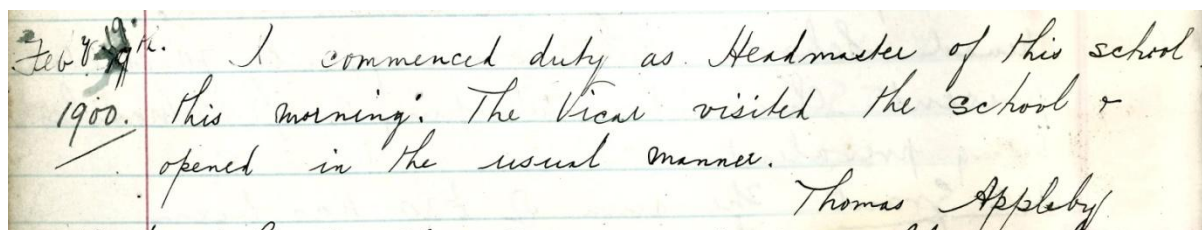 Feby 19th. I commenced duty as Headmaster of this school
1900. this morning. The Vicar visited the school &
opened in the usual manner.
Thomas Appleby